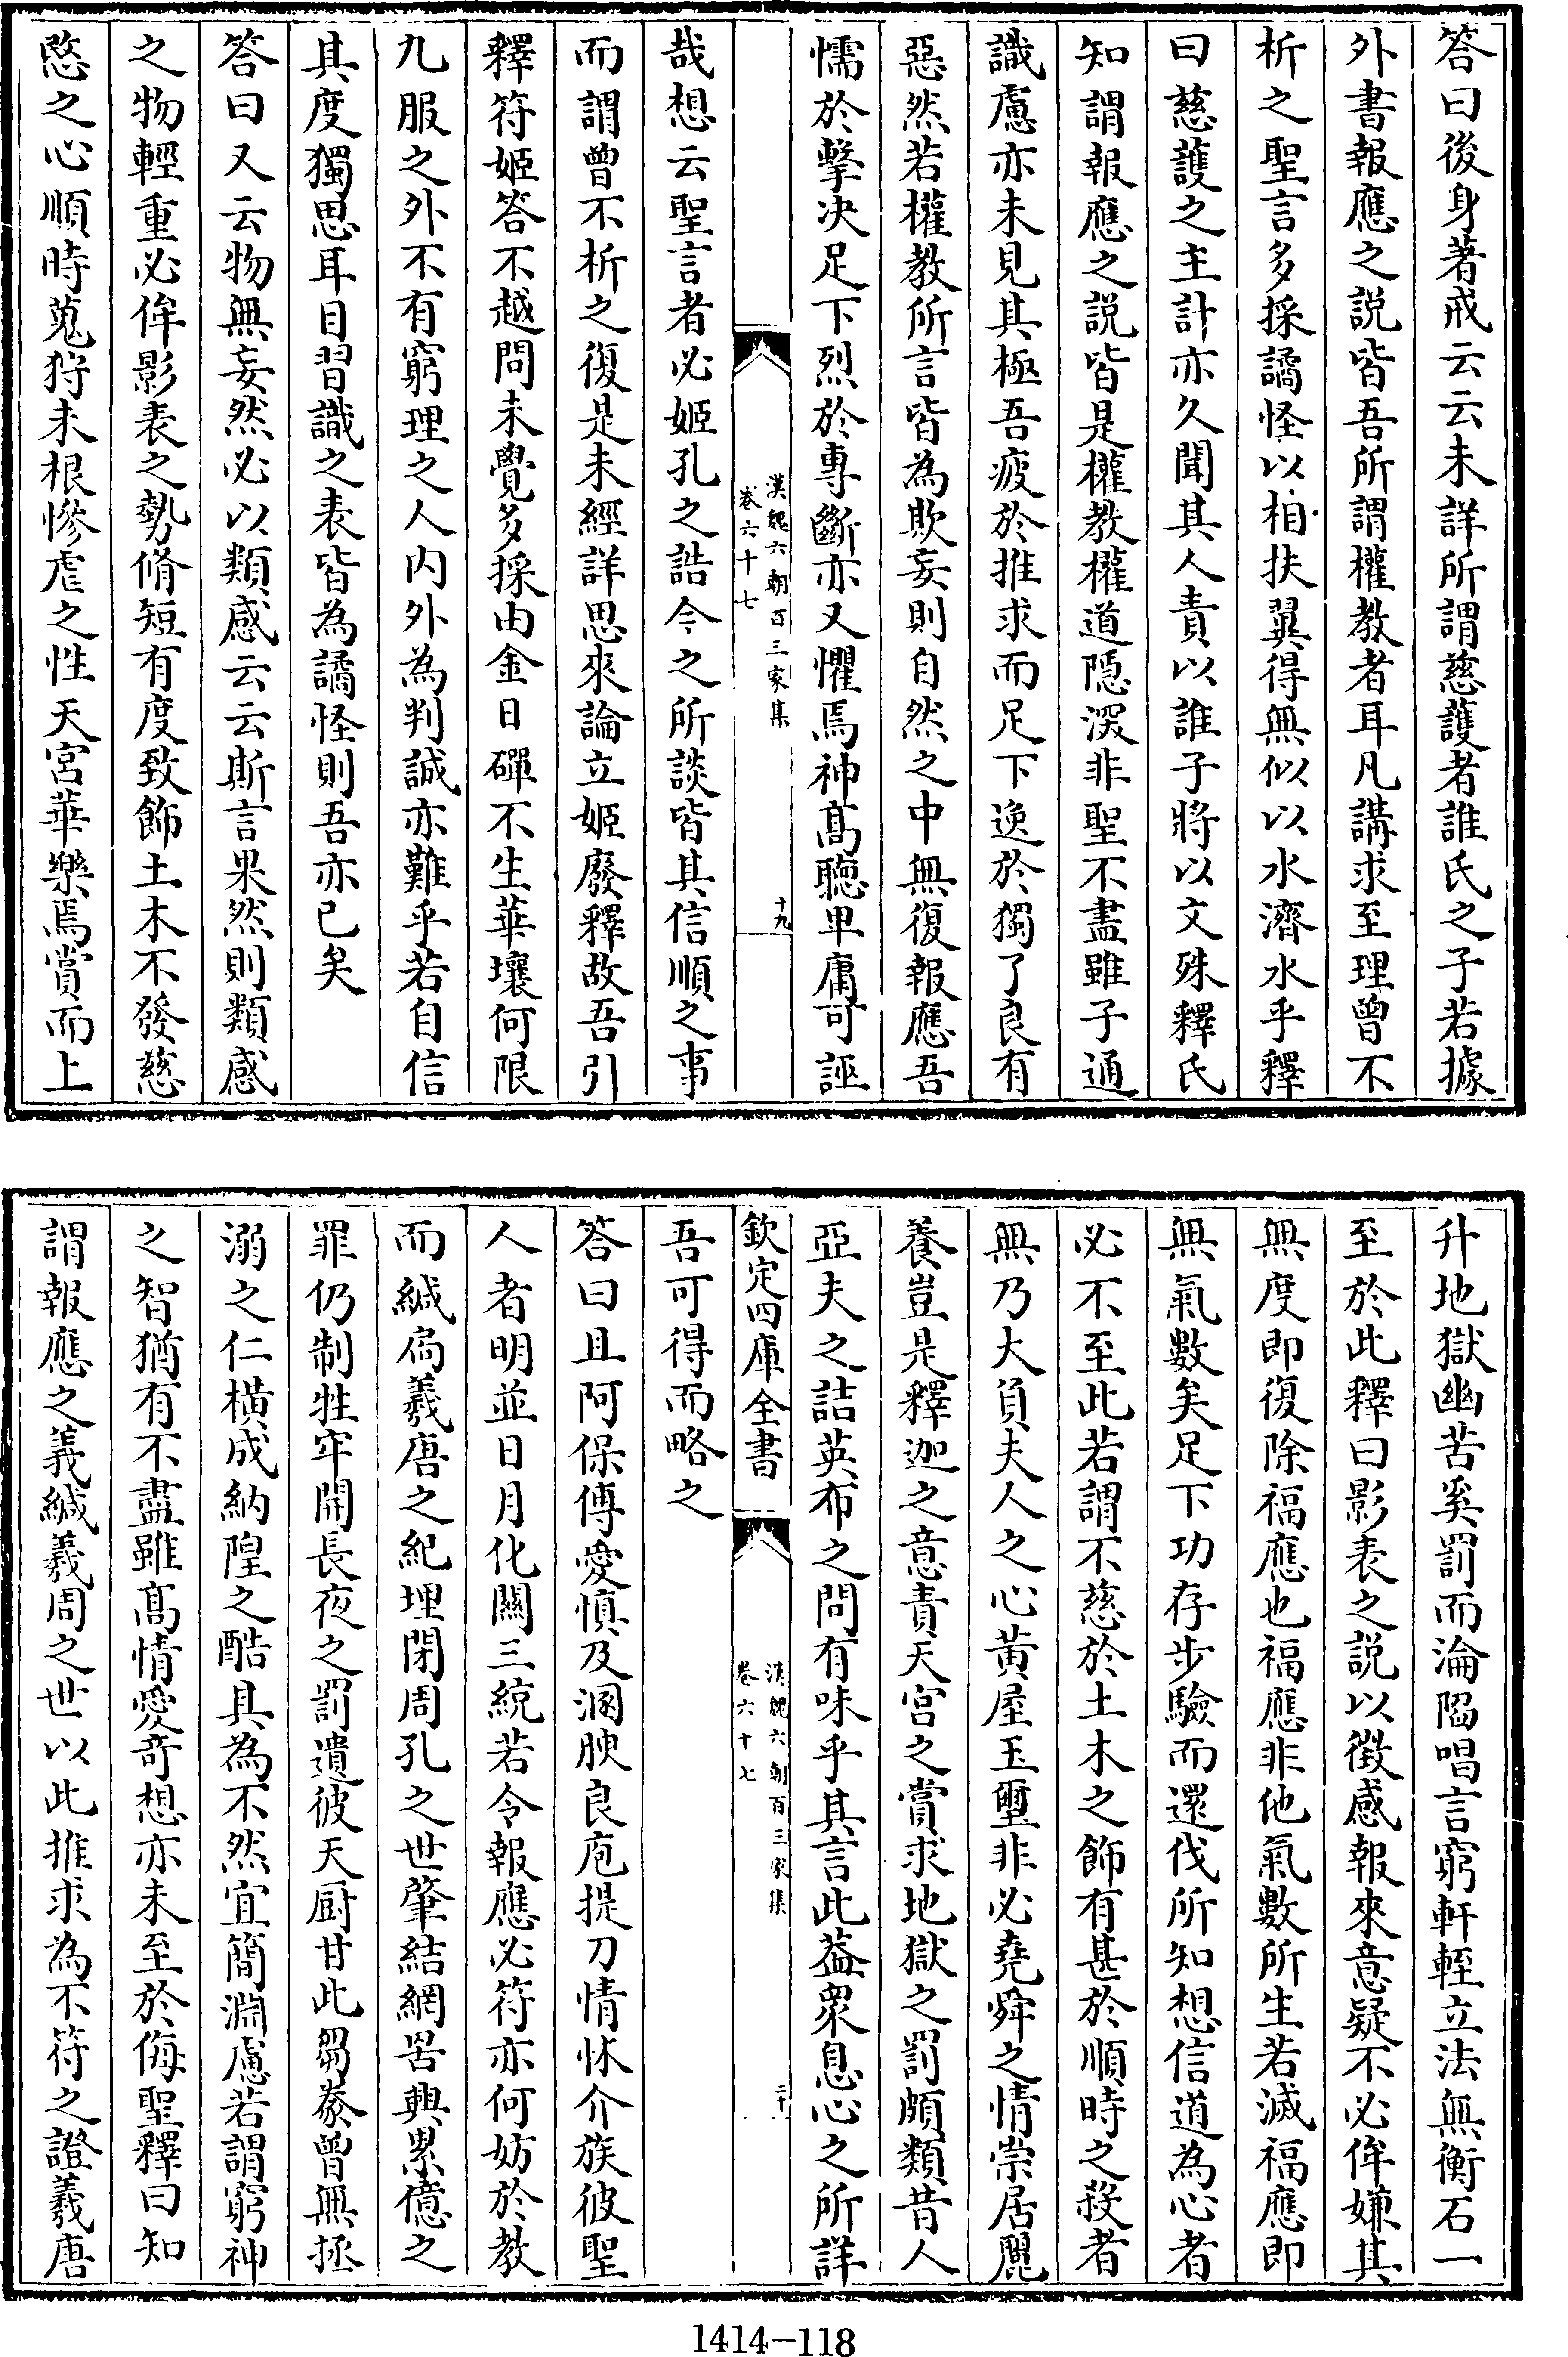 答曰後身著戒云云未詳所謂慈護者誰氏之子若據
外書報應之説皆吾所謂權教者耳凡講求至理曾不
析之聖言多採譎怪以相扶翼得無似以水濟水乎釋
曰慈護之主計亦久聞其人責以誰子將以文殊釋氏
知謂報應之説皆是權教權道隱深非聖不盡雖子通
識慮亦未見其極吾疲於推求而足下逸於獨了良有
惡然若權教所言皆為欺妄則自然之中無復報應吾
懦於擊決足下烈於專斷亦又懼焉神髙聽卑庸可誣
漢魏六朝百三家集
卷六十七
十九
哉想云聖言者必姬孔之誥今之所談皆其信順之事
而謂曾不析之復是未經詳思來論立姬廢釋故吾引
釋符姬答不越問未覺多採由金日磾不生華壤何限
九服之外不有窮理之人内外為判誠亦難乎若自信
其度獨思耳目習識之表皆為譎怪則吾亦已矣
答曰又云物無妄然必以類感云云斯言果然則類感
之物輕重必侔影表之勢脩短有度致飾土木不發慈
愍之心順時蒐狩未根慘虐之性天宫華樂焉賞而上
升地獄幽苦奚罰而淪陷唱言窮軒輊立法無衡石一
至於此釋曰影表之説以徴感報來意疑不必侔嫌其
無度即復除福應也福應非他氣數所生若滅福應即
無氣數矣足下功存步驗而還伐所知想信道為心者
必不至此若謂不慈於土木之飾有甚於順時之殺者
無乃大負夫人之心黄屋玉璽非必堯舜之情崇居麗
養豈是釋迦之意責天宫之賞求地獄之罰頗類昔人
亞夫之詰英布之問有味乎其言此葢衆息心之所詳
欽定四庫全書
漢魏六朝百三家集
卷六十七
二十
吾可得而略之
答曰且阿保傅愛慎及溷腴良庖提刀情怵介族彼聖
人者明並日月化關三統若令報應必符亦何妨於教
而緘扃羲唐之紀埋閉周孔之世肇結網罟興累億之
罪仍制牲牢開長夜之罰遺彼天厨甘此芻豢曾無拯
溺之仁横成納隍之酷其為不然宜簡淵慮若謂窮神
之智猶有不盡雖髙情愛奇想亦未至於侮聖釋曰知
謂報應之義緘羲周之世以此推求為不符之證羲唐
1414-118